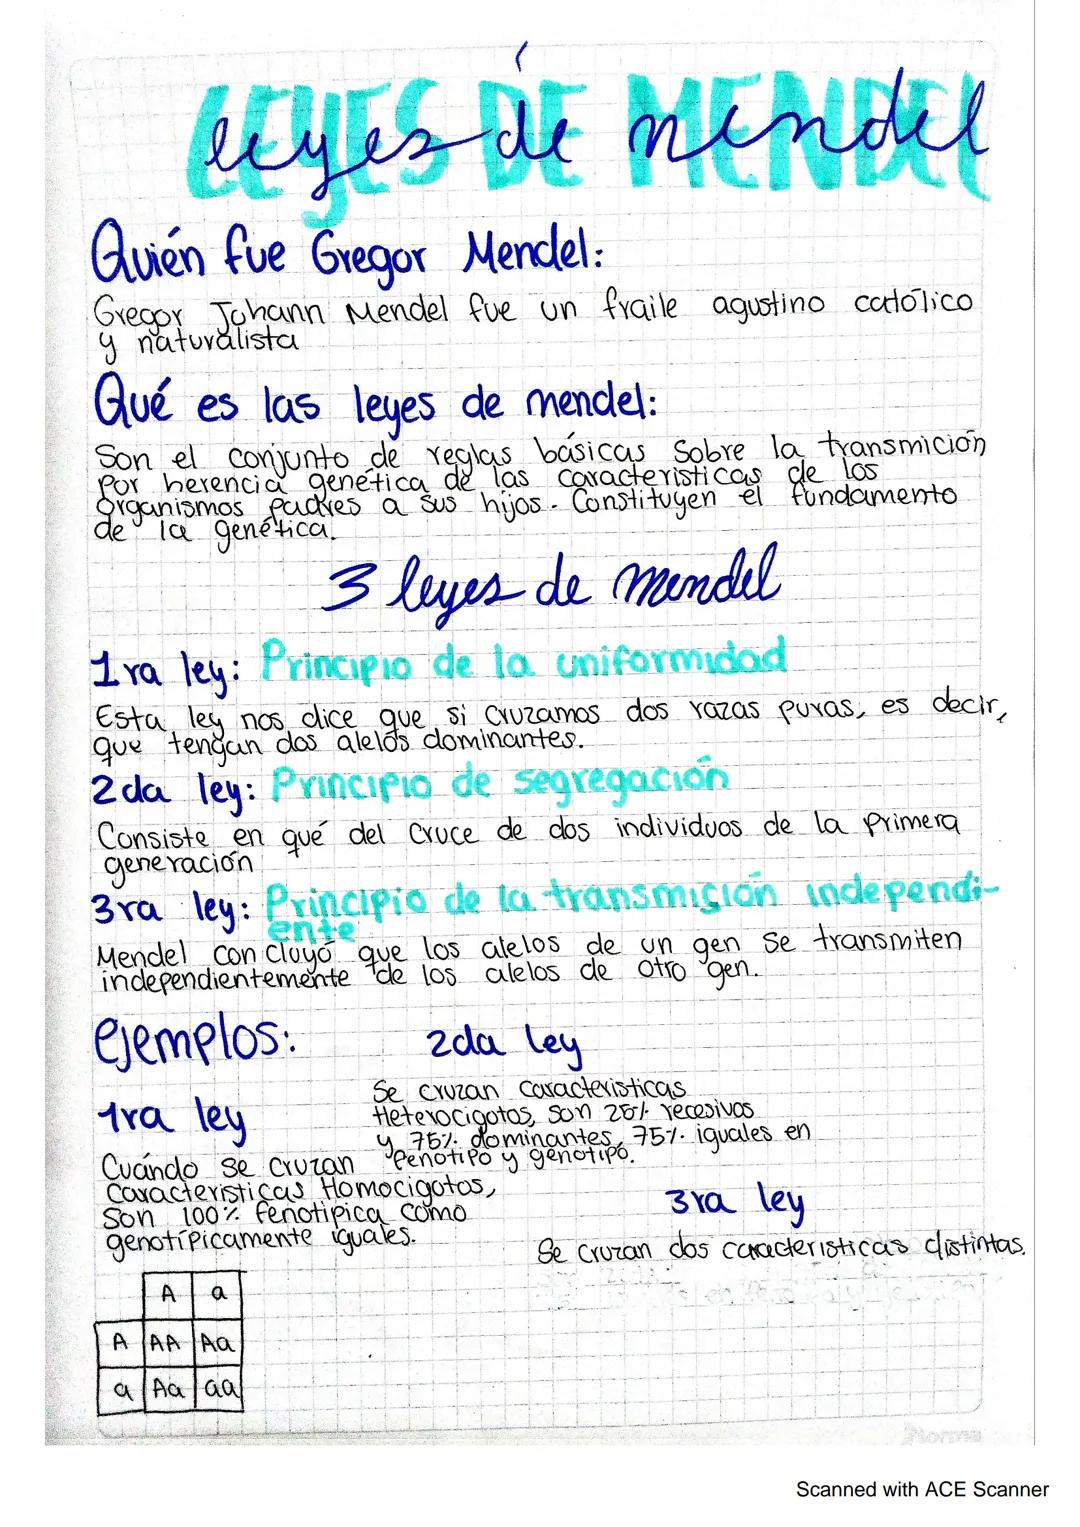 LEYES DE MENDEL
leyes de mendel
Quién fue Gregor Mendel:
Gregor Johann Mendel fue un fraile agustino católico
y naturalista
Qué es las leyes de mendel:
Son el conjunto de reglas básicas Sobre la transmición
Por herencia genética de las caracteristicas de los
organismos padres a sus hijos. Constituyen el fundamento
de la genética.
3 leyes de mendel
1ra ley: Principio de la uniformidad
Esta ley nos dice que si cruzamos dos razas puras, es decir,
que tengan dos alelos dominantes.
2da ley: Principio de segregación
Consiste en qué del cruce de dos individuos de la primera
generación
3ra ley: Principio de la transmisión independi-
ente
Mendel concluyó que los alelos de un gen se transmiten
independientemente de los alelos de otro gen.
ejemplos:
1ra ley
Cuándo se cruzan
Características Homocigotos,
Son 100% fenotipica como
genotípicamente iguales.
A a
A AA Aa
a Aa aa
2da ley
Se cruzan Caracteristicas
Heterocigotos, son 25% recesivos
y 75% dominantes, 75% iguales en
fenotipo y genotipo.
3ra ley
Se cruzan dos caracteristicas distintas.
Norma
Scanned with ACE Scanner